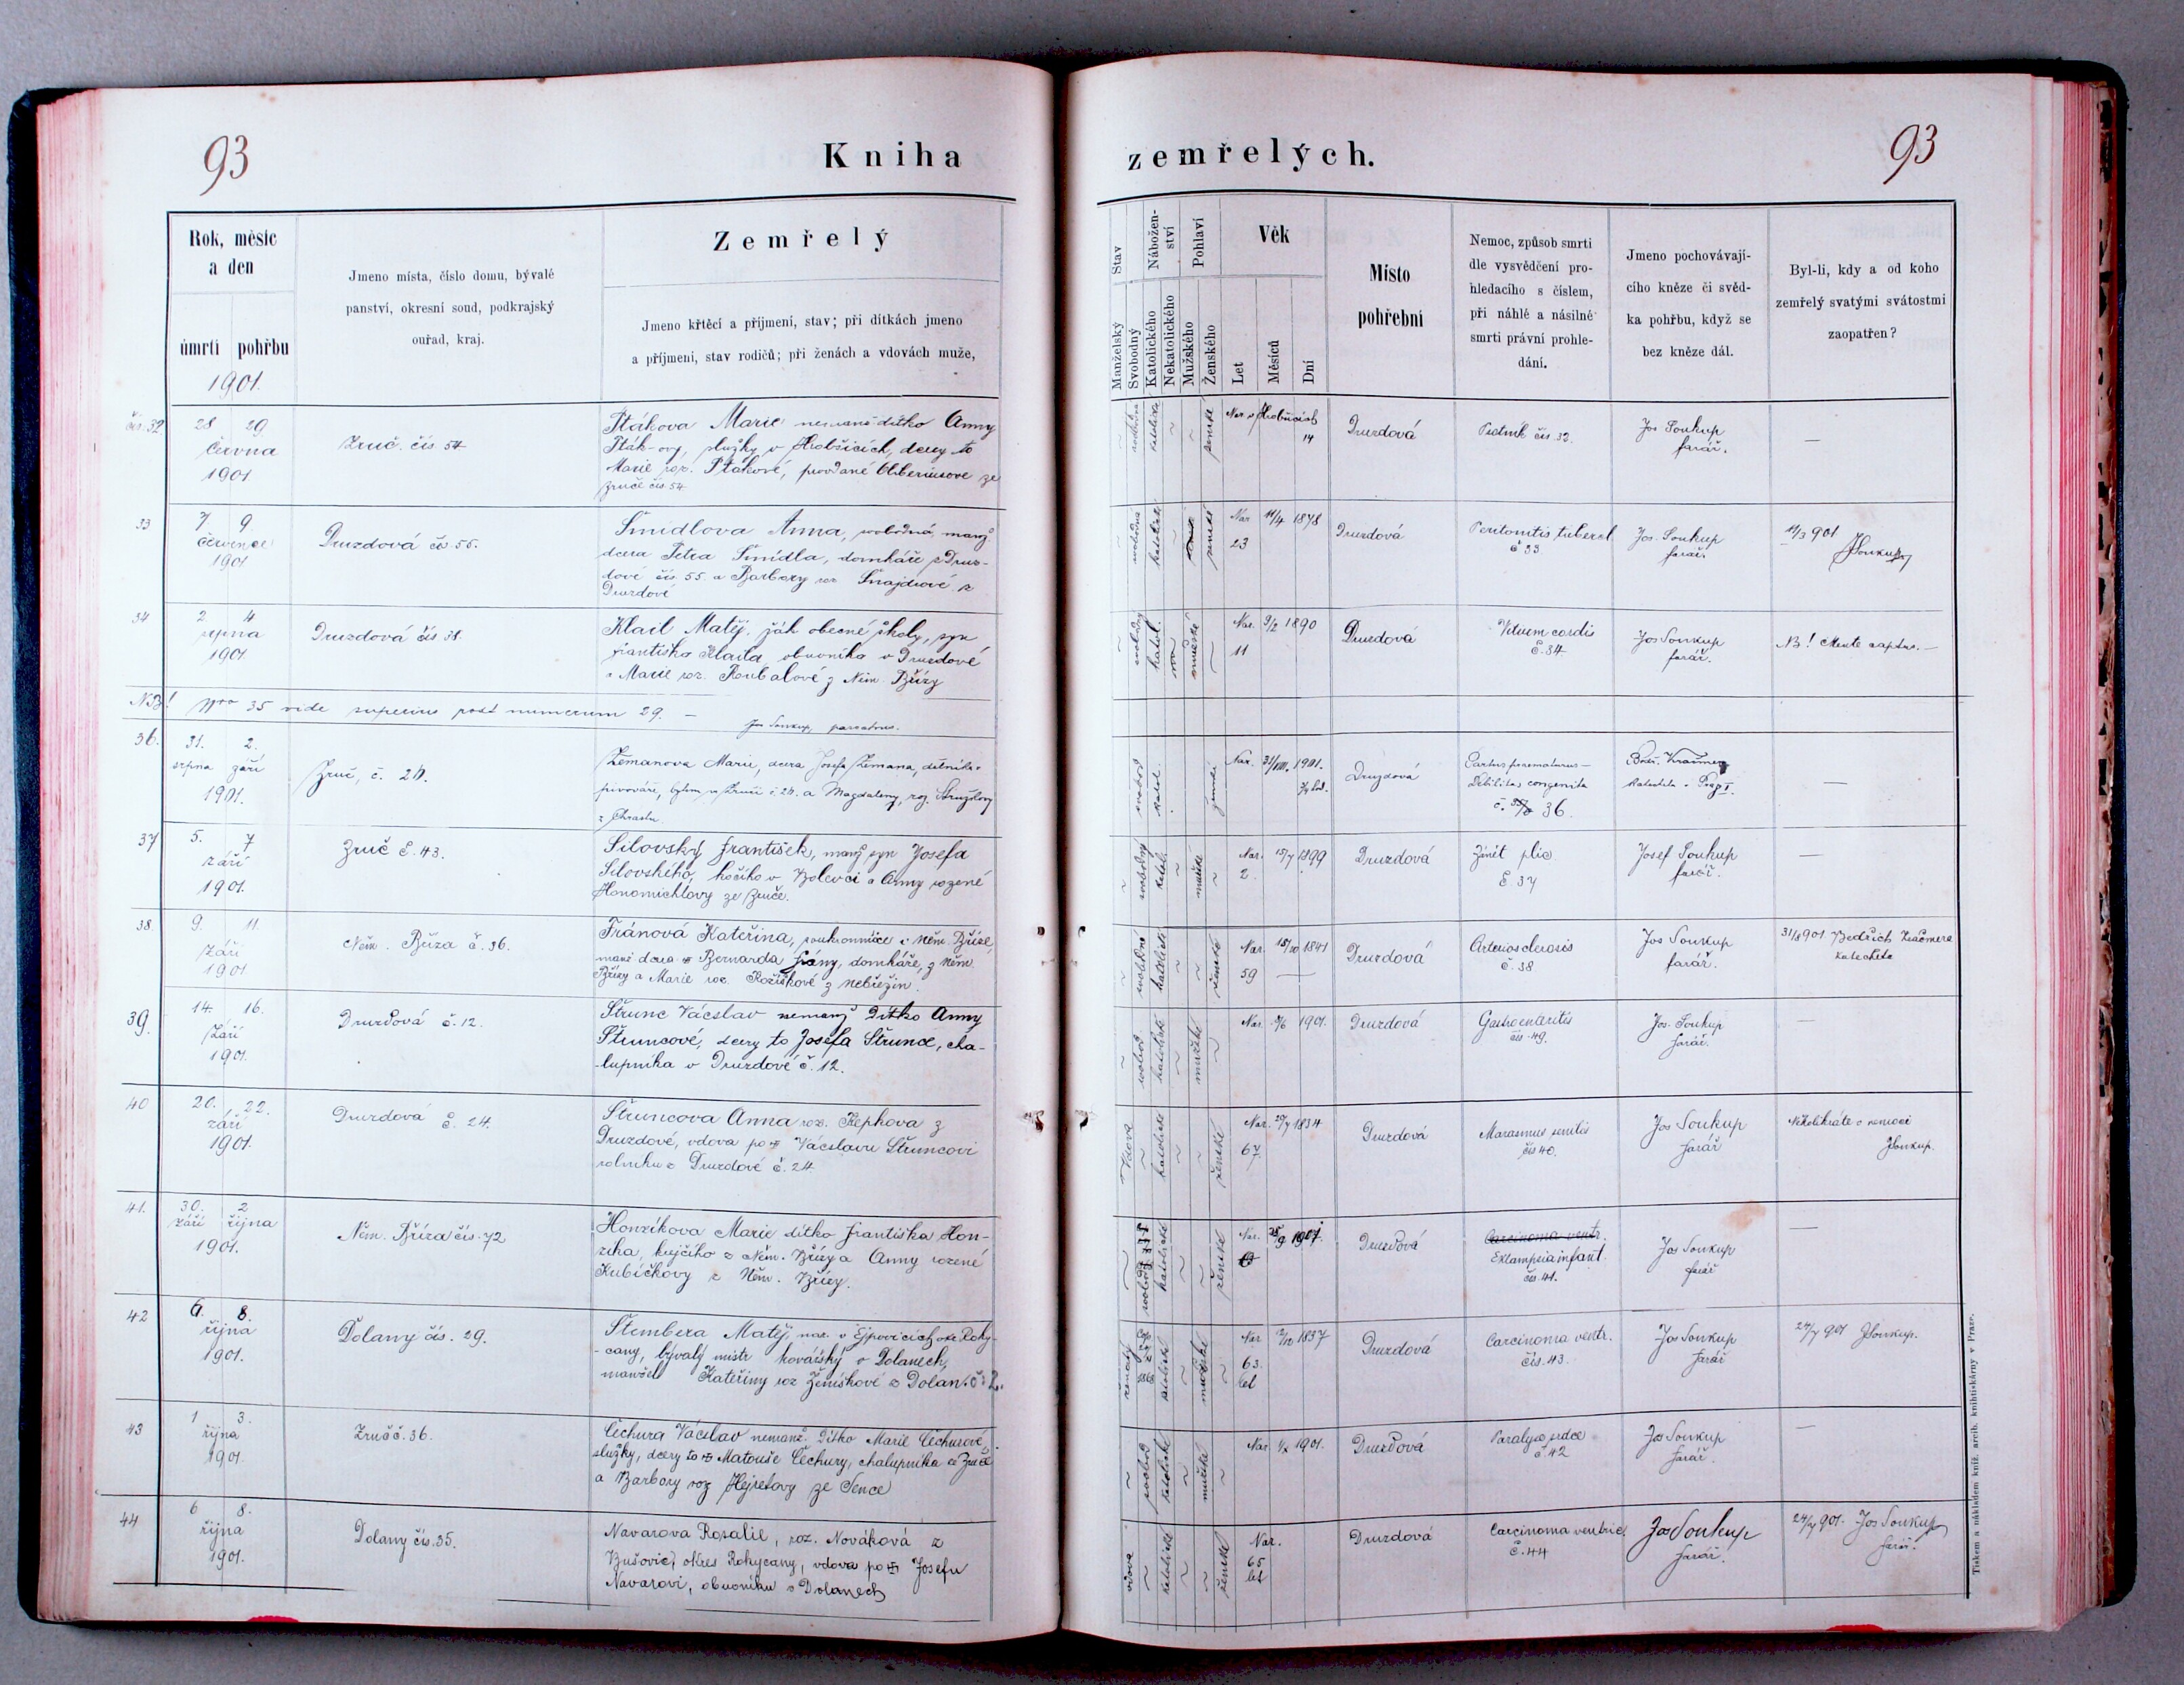 93
Kniha
zemřelých.
93
Rok, měsíc
a den
úmrtí pohřbu
1901.
Jmeno místa, číslo domu, bývalé
panství, okresní soud, podkrajský
ouřad, kraj.
Zemřelý
Jmeno křtěcí a příjmení, stav; při dítkách jmeno
a příjmení, stav rodičů; při ženách a vdovách muže,
Stav
Manželský
Svobodný
Nábožen-
ství
Katolického
Nekatolického
Pohlaví
Mužského
Ženského
Věk
Let
Měsíců
Dní
Místo
pohřební
Nemoc, způsob smrti
dle vysvědčení pro-
hledacího s číslem,
při náhlé a násilné
smrti právní prohle-
dání.
Jmeno pochovávají-
cího kněze či svěd-
ka pohřbu, když se
bez kněze dál.
Byl-li, kdy a od koho
zemřelý svatými svátostmi
zaopatřen?
čís. 32
28 29
června
1901
Zruč. čís 54
Ptákova Marie nemanž. dítko Anny
Pták-ovy, služky v
Marie roz. Ptákové, provdané ze
Zruče čís. 54
ženské
14
Druzdová
Psotník čís. 32.
Jos Soukup
farář.
—
33
7 9.
července
1901
Druzdová čís 55.
Šmidlova Anna, svobodná, manž.
dcera Petra Šmídla, domkáře z Druz-
dové čís. 55. a Barbory roz. Šnajdrové z
Druzdové
svobodná
Nar 11/4 1878
23
Druzdová
Peritonitis tubercl
č 33
Jos. Soukup
farář.
11/3 901
JSoukup
34
2 4
srpna
1901.
Druzdová čís 38.
Klail Matěj, žák obecné školy, syn
Františka Klaila, obuvníka v Druzdové
a Marie roz. Roubalové z Něm. Břízy
svobodný
katol.
mužské
Nar. 9/2 1890
11
Druzdová
Vitium cordis
č. 34
Jos Soukup
farář.
NB! Mente captus. —
NB! Nro 35 vide superius post numerum 29. —
Jos Soukup, parochus.
36.
31. 2.
srpna září
1901.
Zruč, č. 24.
Zemanova Marie, dcera Josefa Zemana, dělníka v
pivováře, bytem v Zruči č. 24. a Magdaleny, roz.
z Chrastu
katol.
Nar. 31/VIII. 1901.
Druzdová
Partus praematurus —
Debilitas congenita
č. 36.
—
37
5. 7
září
1901.
Zruč č. 43.
Silovský František, manž. syn Josefa
Silovského, kočího v Bolevci a Anny rozené
Honomichlovy ze Zruče.
svobodný
katol.
mužské
Nar. 15/7 1899
2.
Druzdová
Zánět plic
č 37
Josef Soukup
farář.
—
38
9. 11.
září
1901.
Něm. Bříza č. 36.
Fránová Kateřina, soukromnice v Něm. Bříze,
manž dcera Bernarda Frany, domkáře, z Něm.
Břízy a Marie roz. Rožíškové z Nebřezin.
svobodná
katolické
ženské
Nar. 15/10 1841
59 —
Druzdová
Arteriosclerosis
č. 38
Jos Soukup
farář.
31/8 901 Bedřich Kračmera
katecheta
39.
14. 16.
září
1901.
Druzdová č. 12.
Štrunc Václav nemanž dítko Anny
Štruncové, dcery to Josefa Štrunce, cha-
lupníka v Druzdové č. 12.
svobod
katolické
mužské
Nar. 1901.
Druzdová
Gastroenteritis
čís. 49.
Jos. Soukup
farář.
—
40
20. 22.
září
1901.
Druzdová č. 24.
Štruncova Anna roz. Řephova z
Druzdové, vdova po Václavu Štruncovi
rolníku z Druzdové č. 24
Vdova
katolické
ženské
Nar. 29/7 1834
67
Druzdová
Marasmus senilis
čís 40.
Jos Soukup
farář
Několikráte v nemoci
JSoukup.
41.
30. 2
září října
1901.
Něm. Bříza čís. 72
Honzíkova Marie dítko Františka Hon-
zíka, krejčího z Něm. Břízy a Anny rozené
Kubíčkovy z Něm. Břízy.
katolické
ženské
Nar. 25/9 1901.
Druzdová
Carcinoma ventr.
Eklampsia infant.
čís. 41.
Jos Soukup
farář
—
42
6. 8.
října
1901.
Dolany čís. 29.
Štembera Matěj, nar. v Ejpovicích okr. Roky-
cany, bývalý mistr kovářský v Dolanech,
manžel Kateřiny roz Ženíškové z Dolan. č. 2.
ženatý
katolické
mužské
Nar 1837
63.
let
Druzdová
Carcinoma ventr.
čís. 43.
Jos Soukup
farář
24/7 901 JSoukup.
43
1 3.
října
1901.
Zruč č. 36.
Čechura Václav nemanž. dítko Marie Čechurové,
služky, dcery to Matouše Čechury, chalupníka ze Zruče
a Barbory roz Hejretovy ze Sence
svobod
katolické
mužské
Nar 1901.
Druzdová
Paralysa srdce
č. 42
Jos Soukup
farář.
—
44
6 8.
října
1901.
Dolany čís. 35.
Navarova Rosalie, roz. Nováková z
Bušovic, okres Rokycany, vdova po Josefu
Navarovi, obuvníku v Dolanech
vdova
katolické
ženské
Nar.
65
let
Druzdová
Carcinoma ventric.
č. 44
Jos Soukup
farář.
24/7 901. Jos Soukup
farář.
Tiskem a nákladem kníž. arcib. knihtiskárny v Praze.